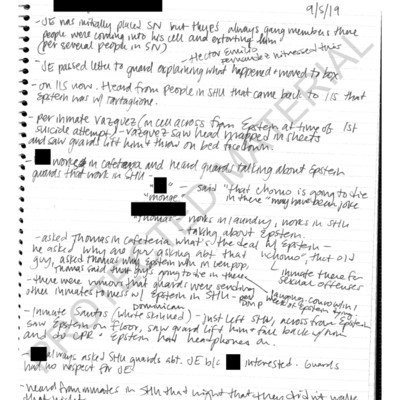 9/5/19
- JE was initially placed SN but they's always gang members there
people were coming into his cell and extorting him
(per several people in SN)
Hector Emilio
Fernandez witnessed this
- JE passed letter to guard explaining what happened + moved to box.
- on 11S now. Heard from people in SHU that came back to 11S that
Epstein was w/ tartaglione.
- per inmate Vazquez (in cell across from Epstein at time of 1st
suicide attempt) - Vazquez saw head wrapped in sheets
and saw guards lift him + throw on bed face down.
- works in cafeteria and heard guards talking about Epstein
guards that work in SHU -
"monge" said "that chomo is going to die
in there" may have been joke
"Thomas" works in laundry, works in SHU
talking about Epstein.
- asked Thomas in cafeteria what's the deal w/ Epstein -
he asked why are you asking abt that "chomo", that old
guy, asked thomas why Epstein not in gen pop,
Thomas said that guy's going to die in there
inmate there for
sexual offenses
- there were rumors that guards were sending
other inmates to mess w/ Epstein in SHU -
laughing, convo w/in 1
week of Epstein dying
Dominican
- Inmate Santos (white skinned) - just left SHU, across from Epstein
saw Epstein on floor, saw guard lift him + fall back w/ him
and do CPR. Epstein had headphones on.
- always asked SHU guards abt. JE b/c interested. Guards
had no respect for JE
- heard from inmates in SHU that night that they didn't